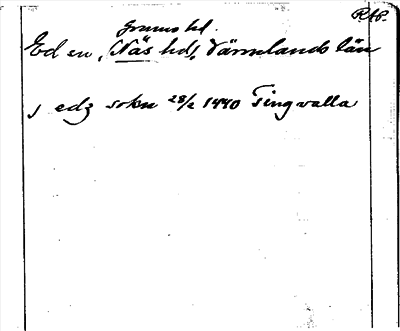 RAP.
Grums hd.
Ed sn, (Näs hd), Värmlands län
j edz sokn 28/2 1440 Tingvalla